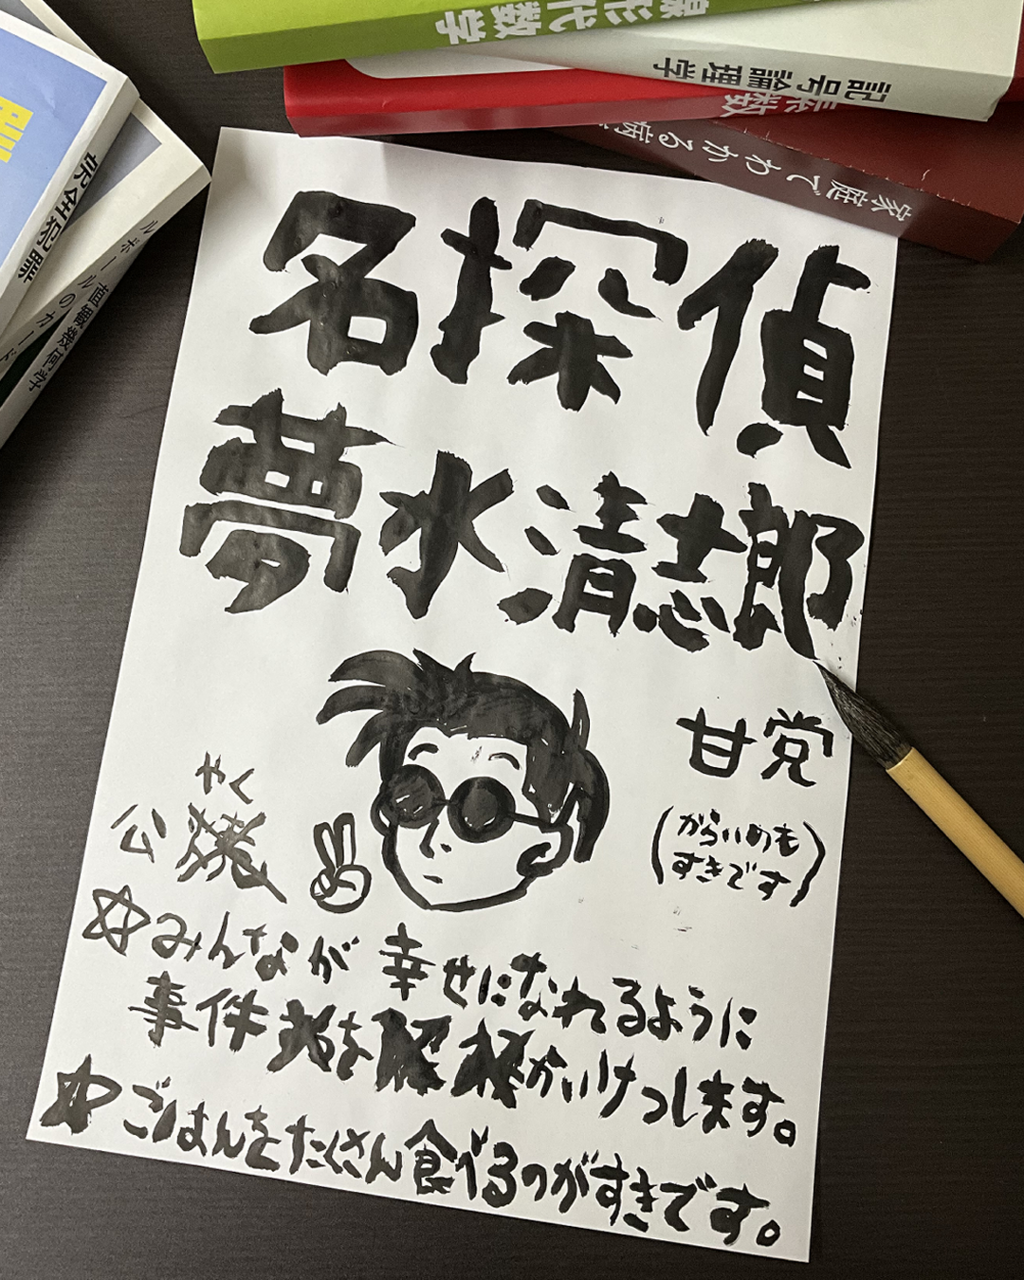 線形代数学
記号論理学
家庭でわかる病
完全犯罪
直観幾何学
ルボールのカード
名探偵
夢水清志郎
甘党
(からいめも
すきです)
公やく
☆みんなが幸せになれるように
事件をかいけつします。
☆ごはんをたくさん食べるのがすきです。